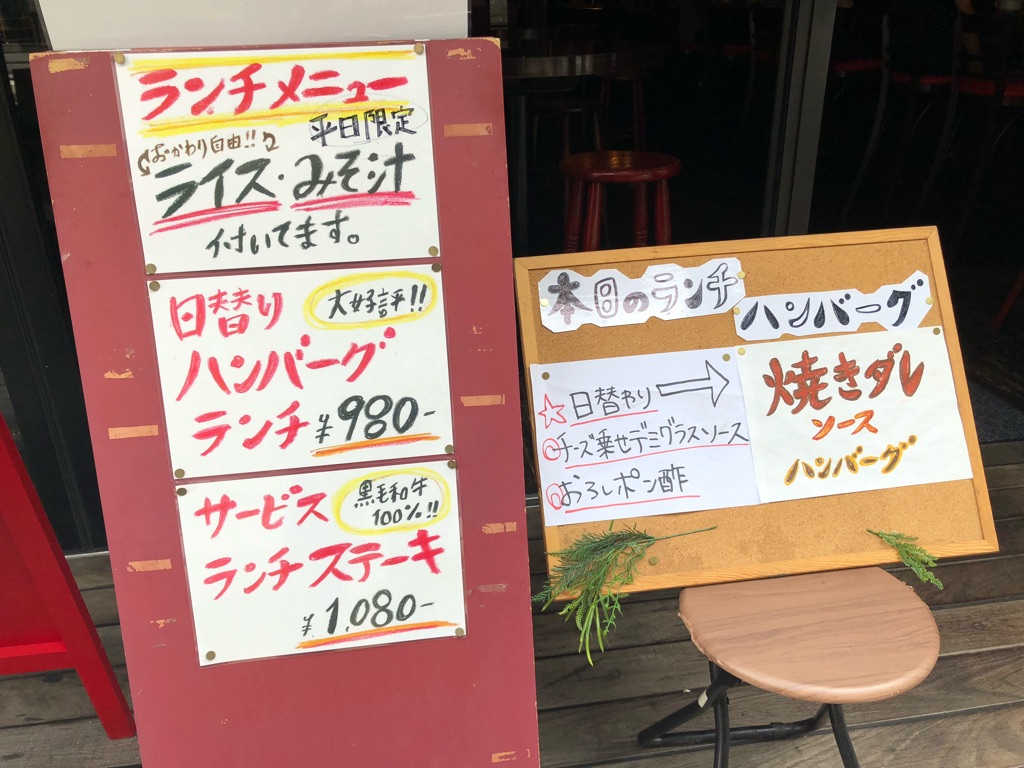 ランチメニュー
平日限定
おかわり自由!!
ライス・みそ汁
付いてます。
日替り
大好評!!
ハンバーグ
ランチ ¥980-
サービス
黒毛和牛
100%!!
ランチステーキ
¥1,080-
本日のランチ
ハンバーグ
☆日替わり
チーズ乗せデミグラスソース
おろしポン酢
焼きダレ
ソース
ハンバーグ